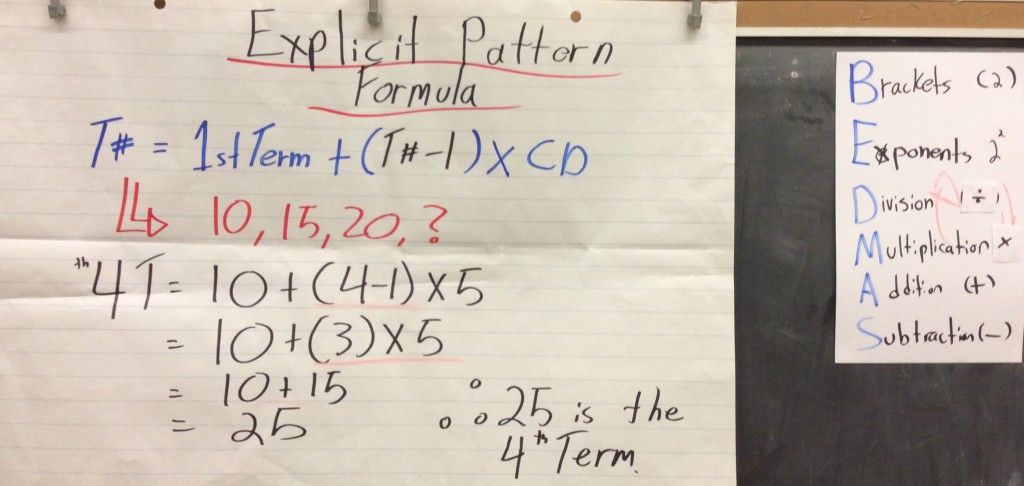 Explicit Pattern
Formula
T# = 1st Term + (T#-1) x CD
10, 15, 20, ?
4th T = 10 + (4-1) x 5
= 10 + (3) x 5
= 10 + 15
= 25
∴ 25 is the
4th Term.
Brackets (2)
Exponents 2²
Division (÷)
Multiplication x
Addition (+)
Subtraction (-)